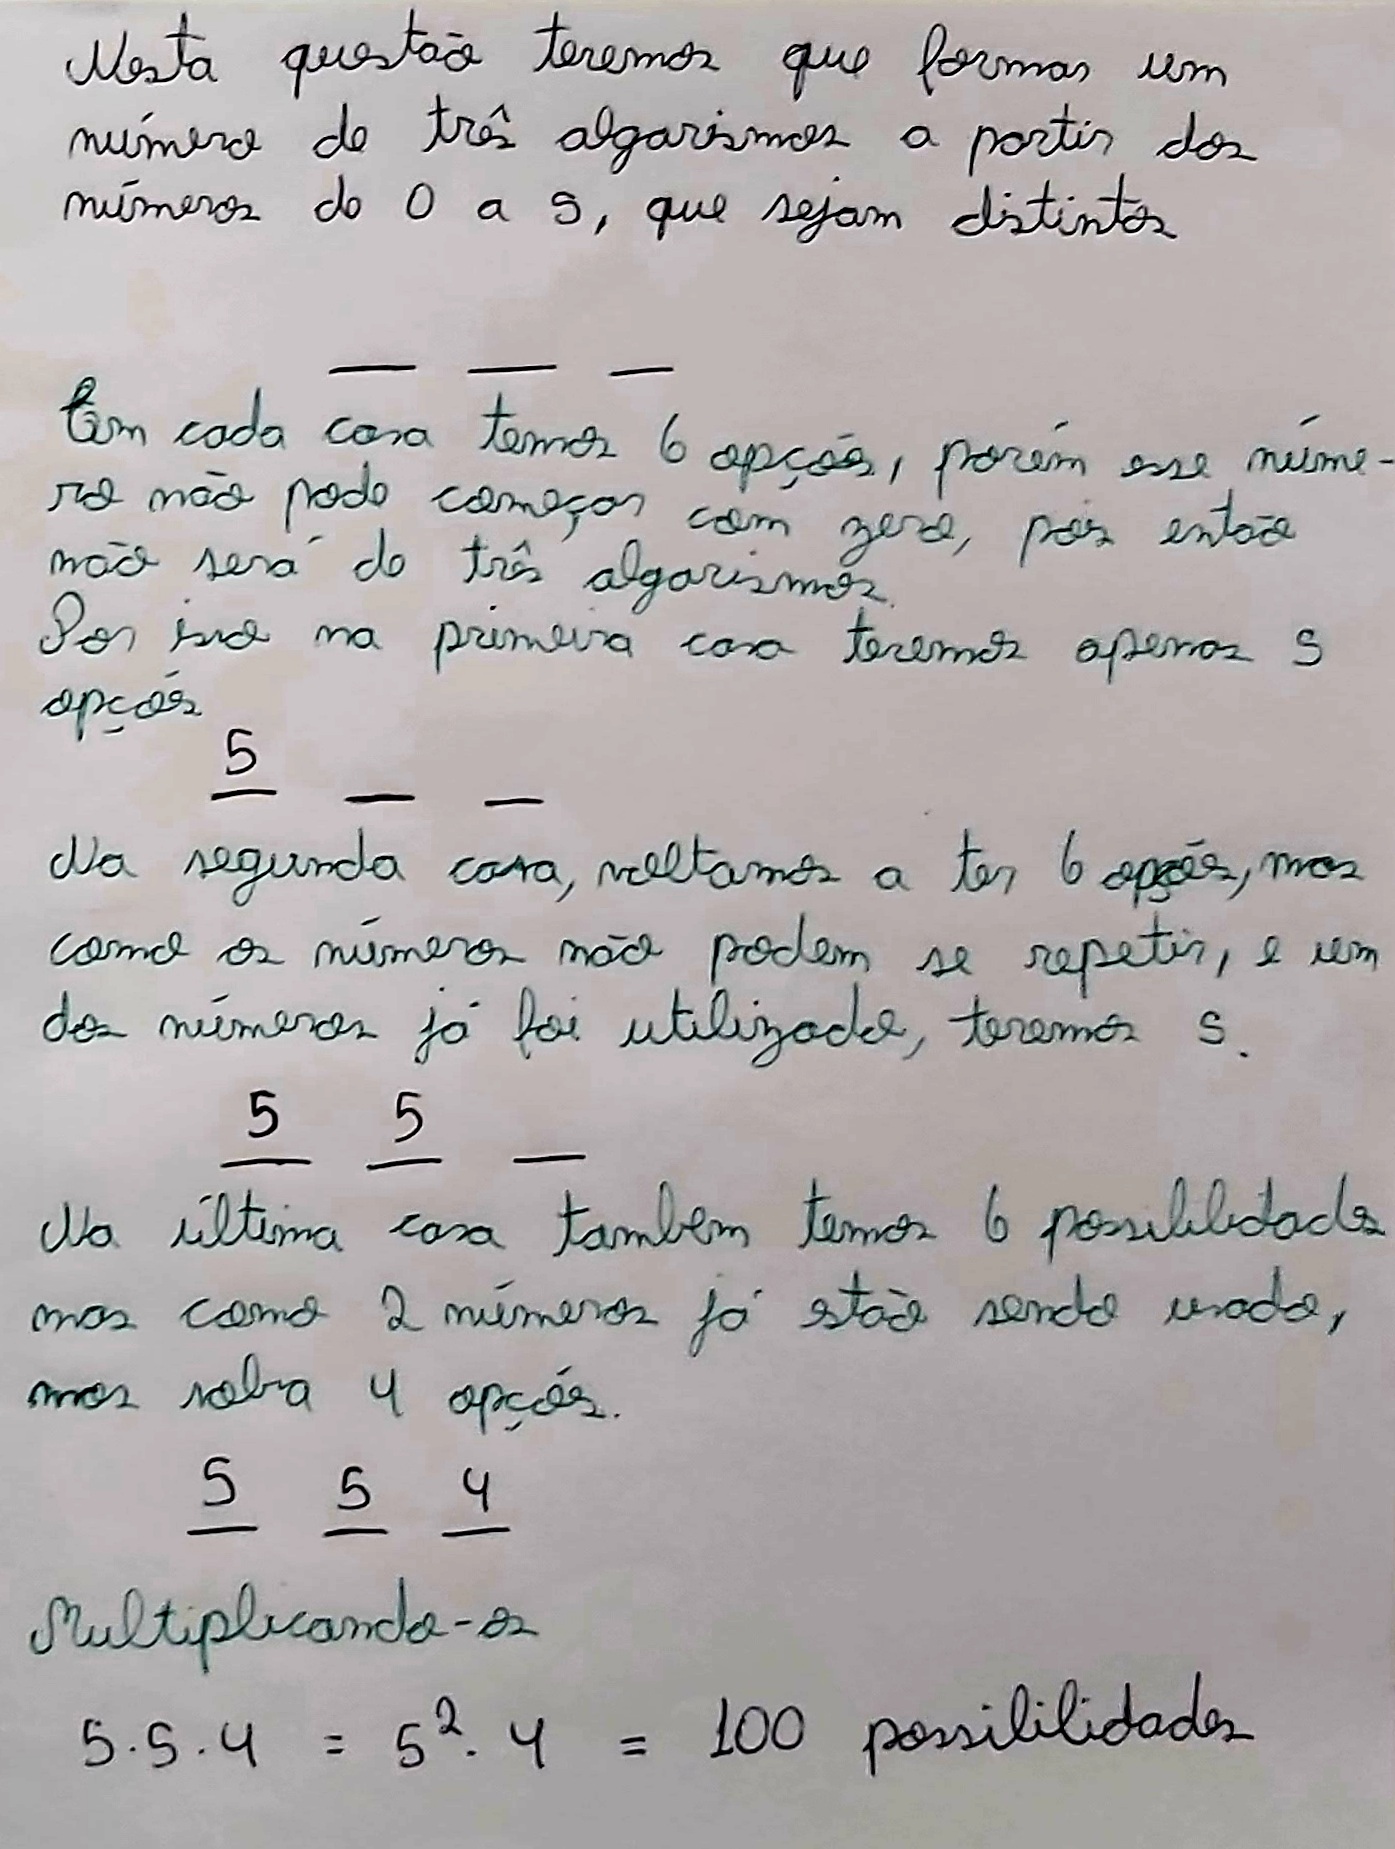 Nesta questão teremos que formar um
número de três algarismos a partir dos
números de 0 a 5, que sejam distintos
Em cada casa temos 6 opções, porém esse núme-
ro não pode começar com zero, pois então
não será de três algarismos.
Por isso na primeira casa teremos apenas 5
opções
5
Na segunda casa, voltamos a ter 6 opções, mas
como os números não podem se repetir, e um
dos números já foi utilizado, teremos 5.
5 5
Na última casa tambem temos 6 possibilidades
mas como 2 números já estão sendo usado,
nos sobra 4 opções.
5 5 4
Multiplicando-os
5.5.4 = 5². 4 = 100 possibilidades